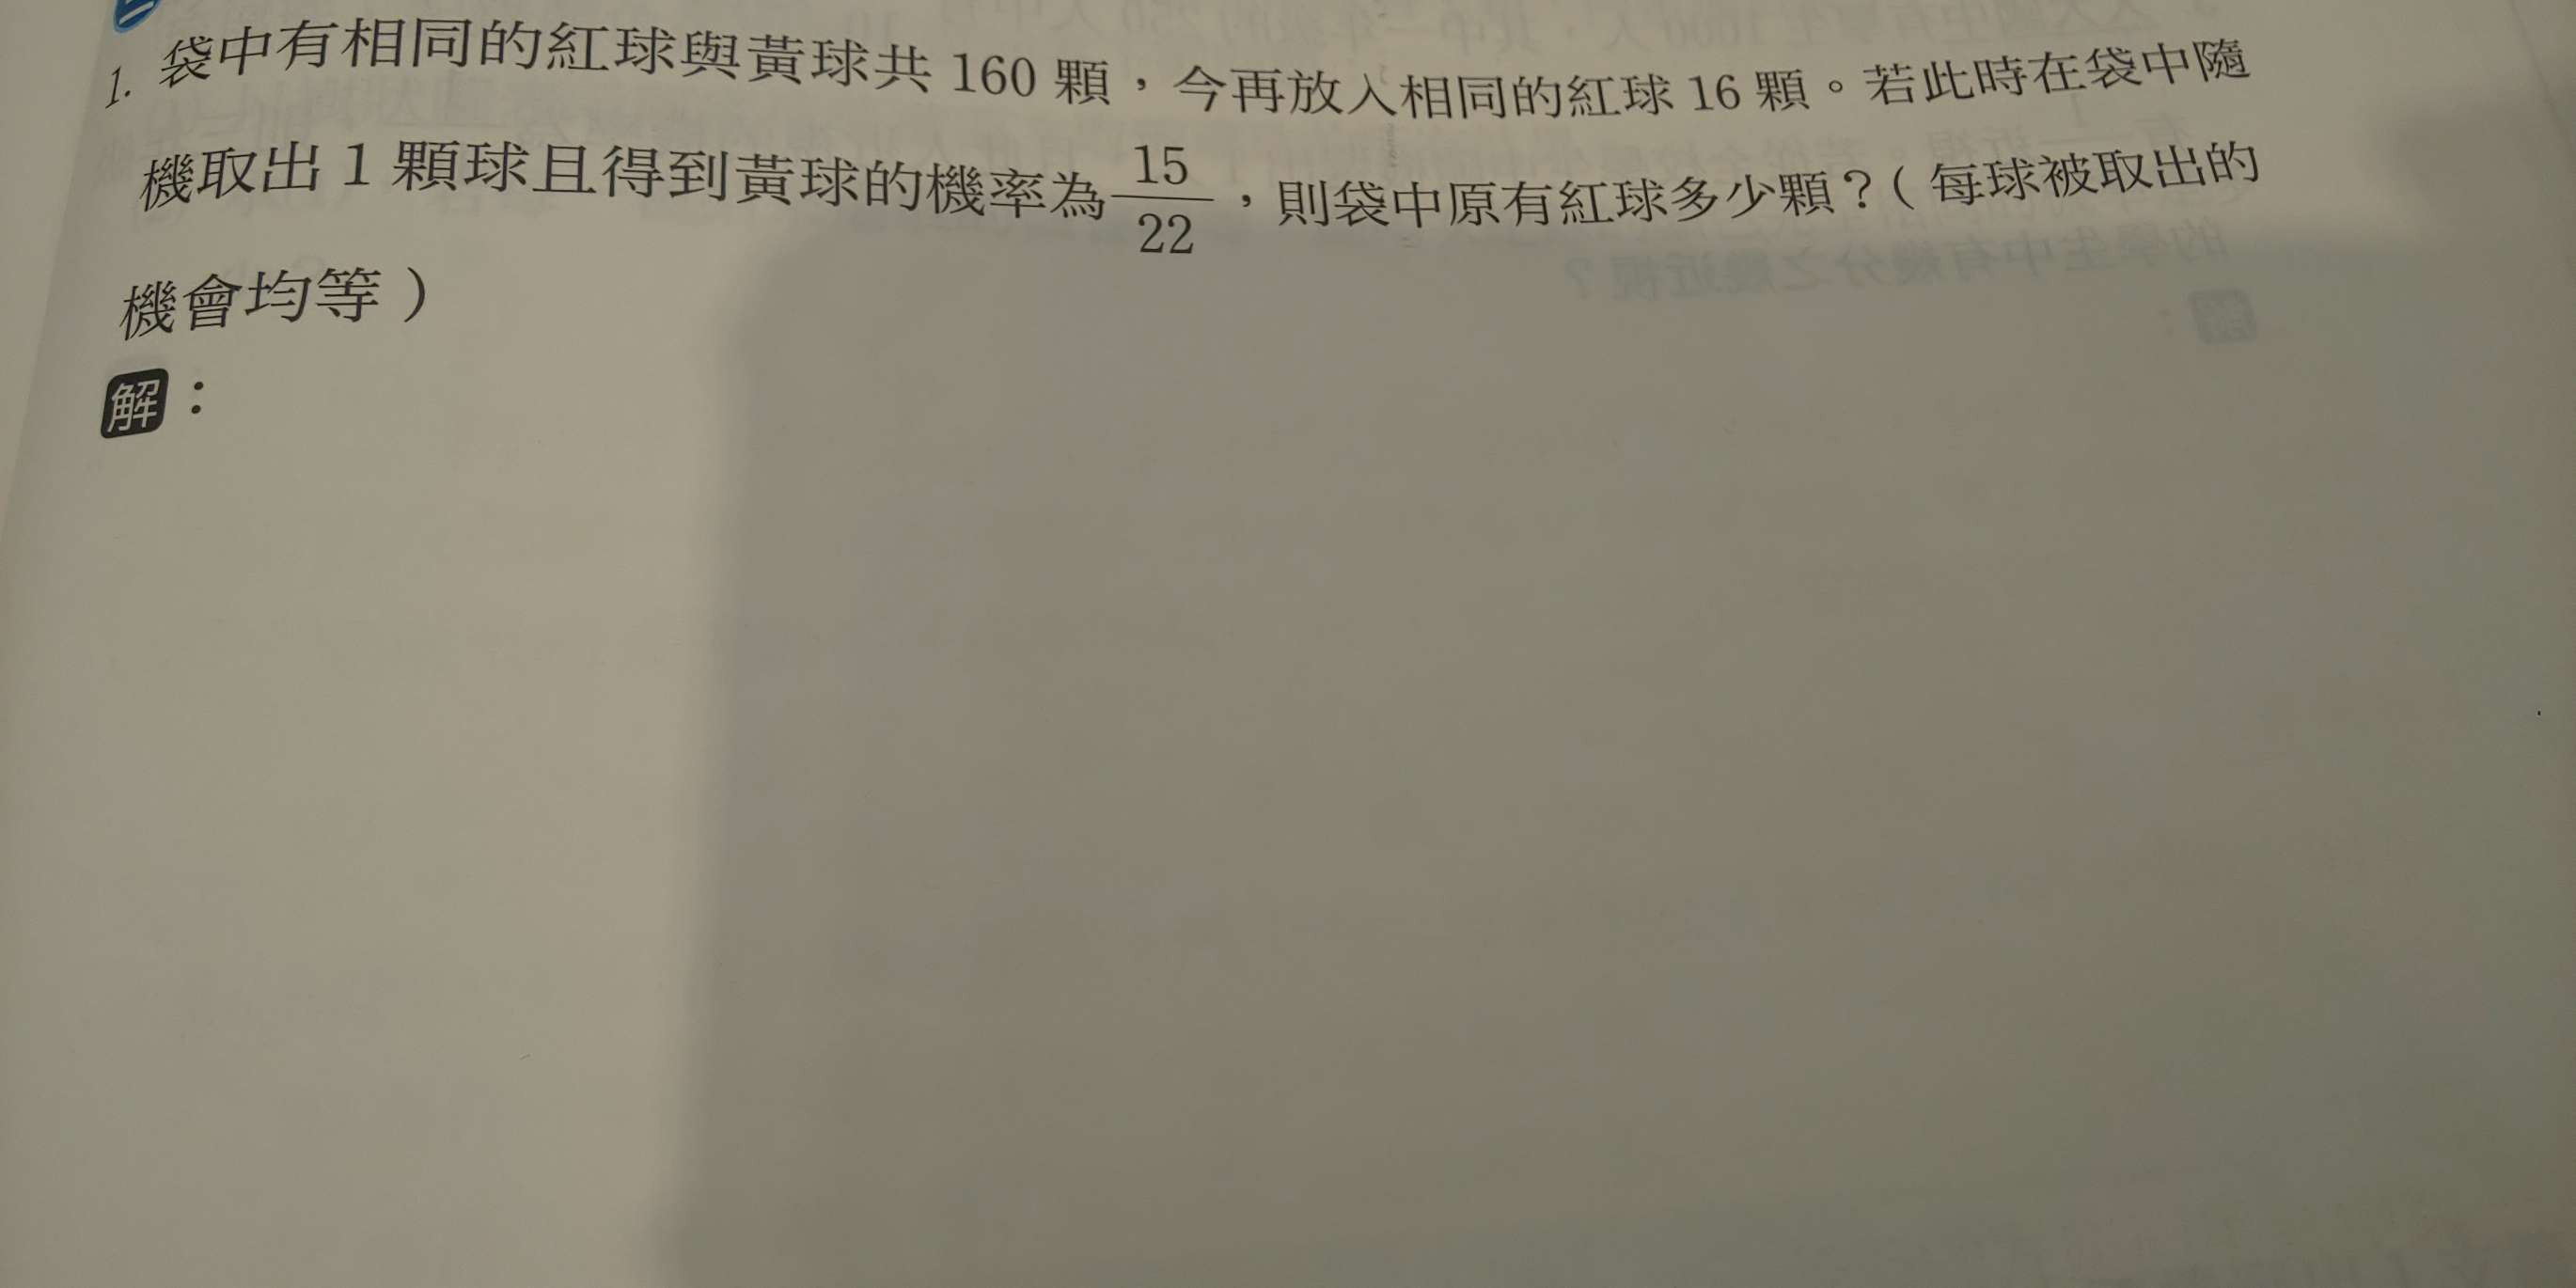 1. 袋中有相同的紅球與黃球共 160 顆，今再放入相同的紅球 16 顆。若此時在袋中隨
機取出 1 顆球且得到黃球的機率為 15/22，則袋中原有紅球多少顆？( 每球被取出的
機會均等 )
解：